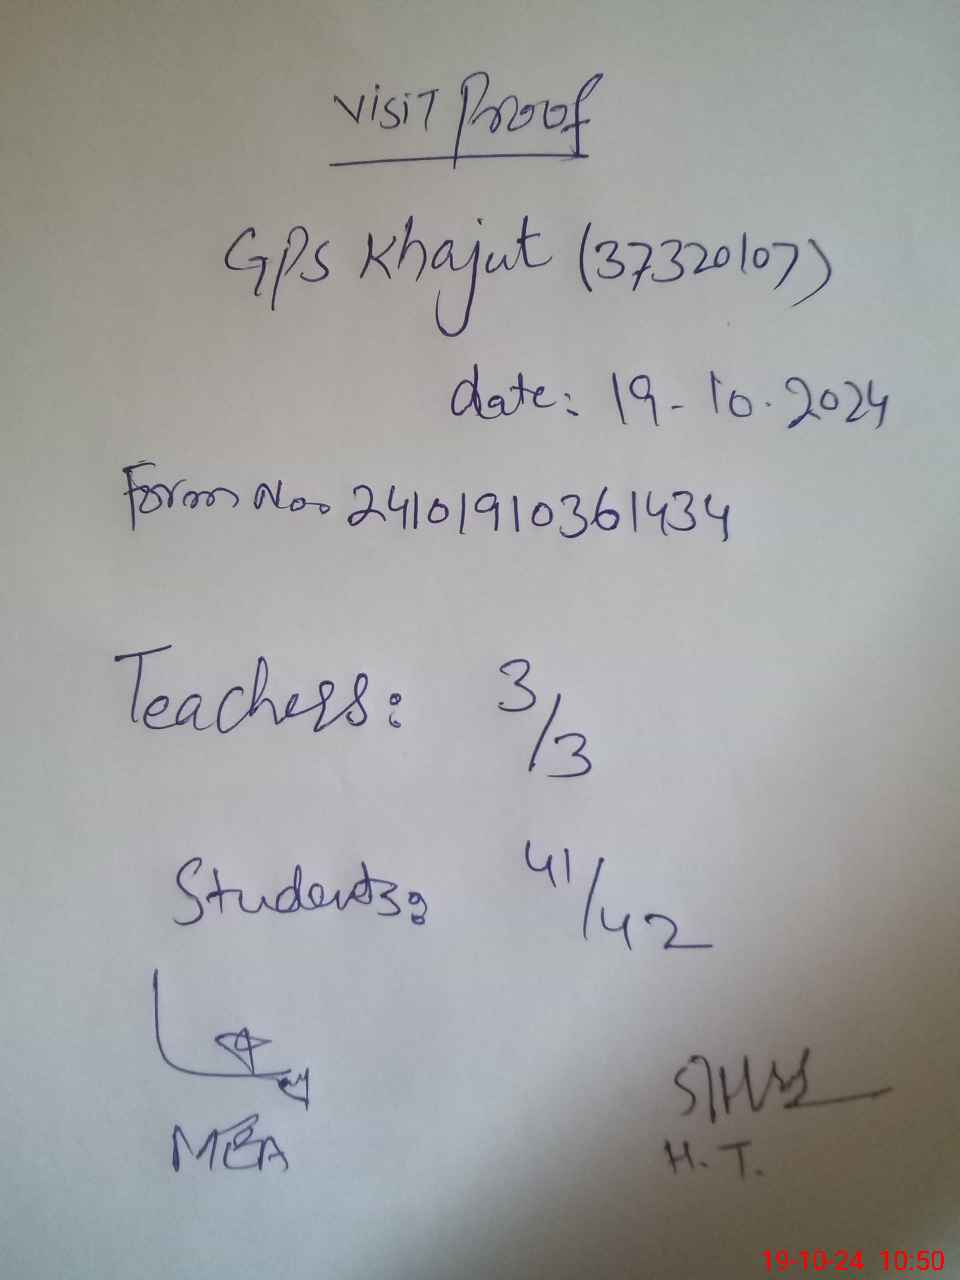 Visit Proof
GPS Khajut (37320107)
date: 19-10-2024
Form No. 24101910361434
Teachers: 3/3
Students: 41/42
MEA
H.T.
19-10-24 10:50